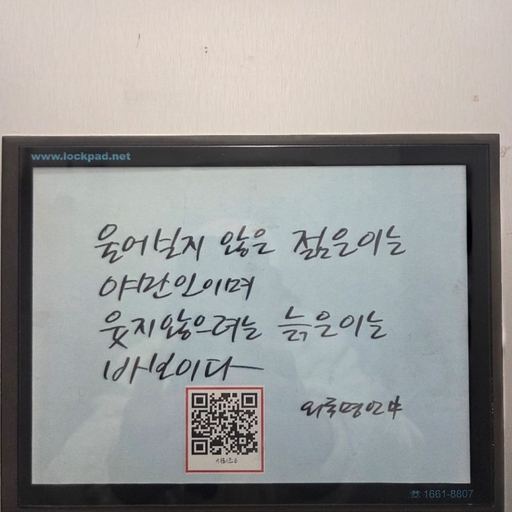 www.lockpad.net
울어보지 않은 젊은이는
야만인이며
웃지않으려는 늙은이는
바보이다
외국명언中
☎ 1661-8807